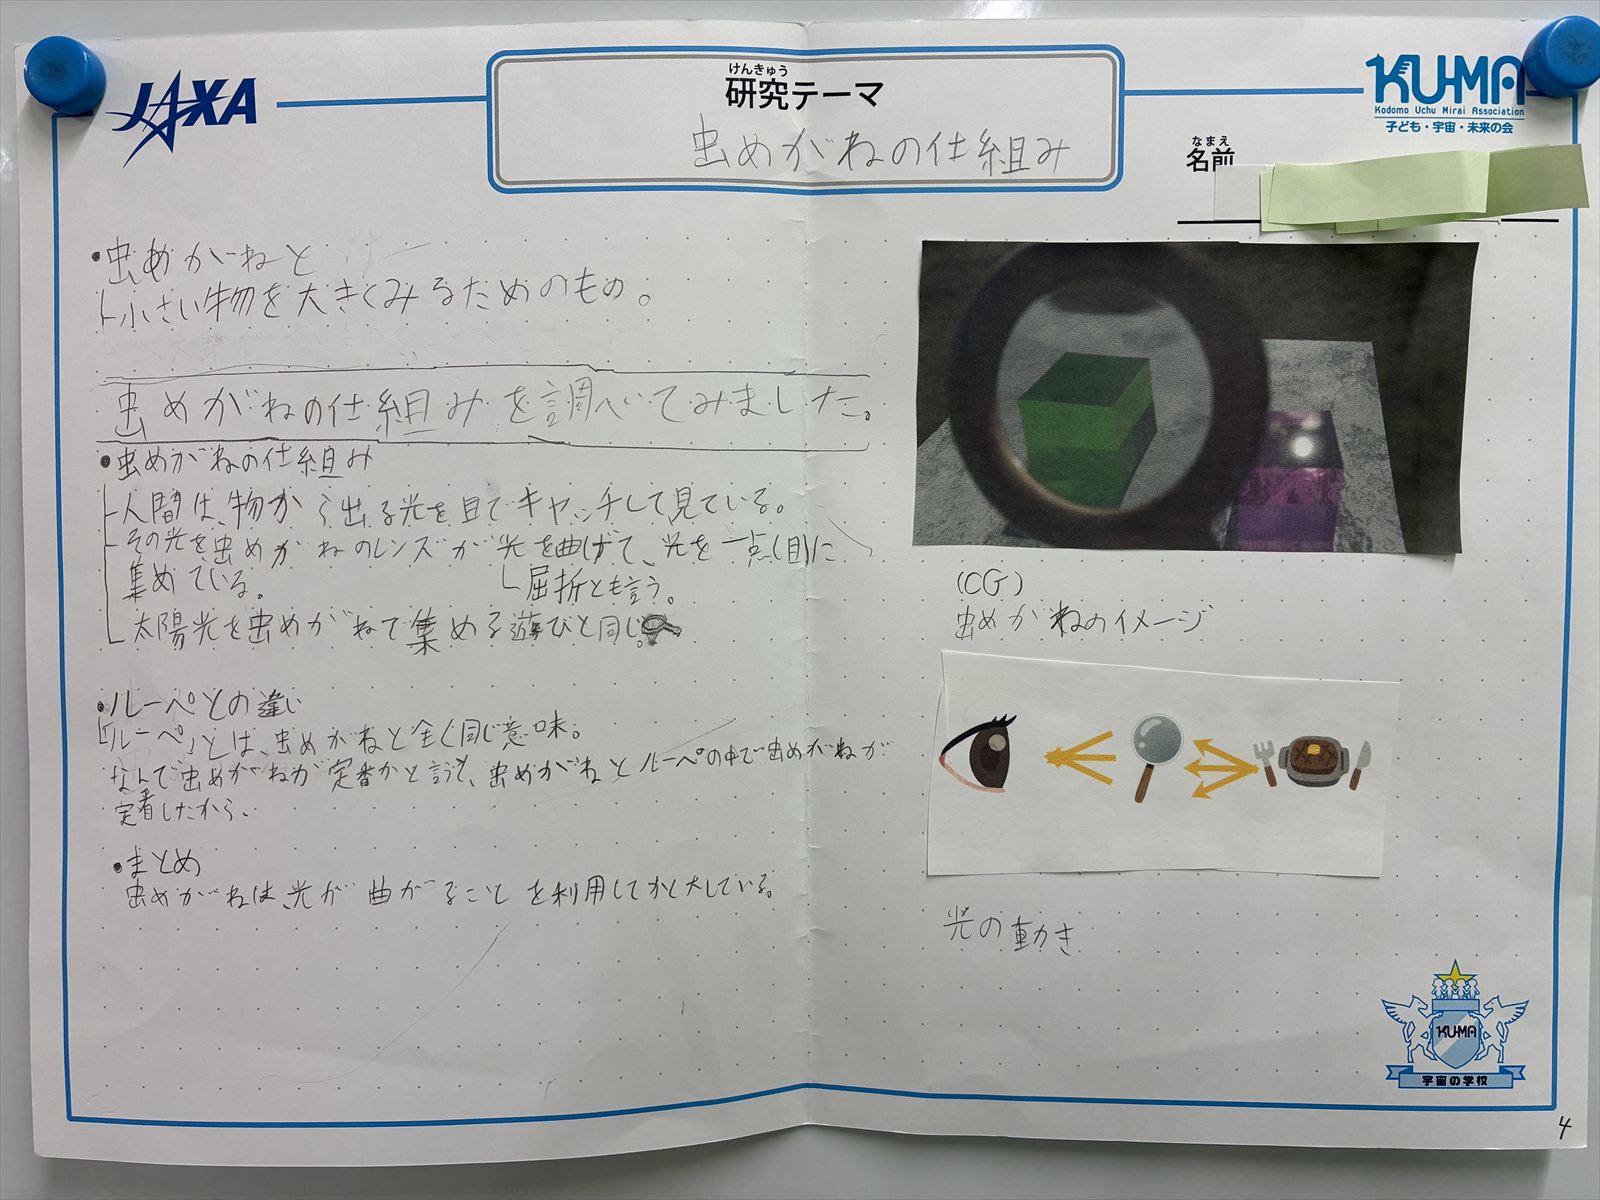 JAXA
けんきゅう
研究テーマ
虫めがねの仕組み
KU-MA
Kodomo Uchu Mirai Association
子ども・宇宙・未来の会
なまえ
名前
・虫めがねと
小さい物を大きくみるためのもの。
虫めがねの仕組みを調べてみました。
・虫めがねの仕組み
人間は、物から出る光を目でキャッチして見ている。
その光を虫めがねのレンズが光を曲げて、光を一点(目)に
集めている。
屈折とも言う。
太陽光を虫めがねで集める遊びと同じ。
・ルーペとの違い
「ルーペ」とは、虫めがねと全く同じ意味。
なんで虫めがねが定番かと言うと、虫めがねとルーペの中で虫めがねが
定着したから。
・まとめ
虫めがねは、光が曲がることを利用してかく大している。
(CG)
虫めがねのイメージ
光の動き
KU-MA
宇宙の学校
4